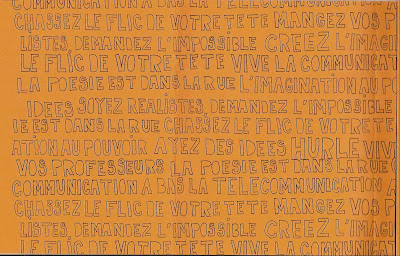 COMMUNICATION A BAS LA TELECOMMUNICATION A
CHASSEZ LE FLIC DE VOTRE TETE MANGEZ VOS P
LISTES, DEMANDEZ L'IMPOSSIBLE CREEZ L'IMAGI
LE FLIC DE VOTRE TETE VIVE LA COMMUNICAT
LA POESIE EST DANS LA RUE L'IMAGINATION AU PO
IDEES SOYEZ REALISTES, DEMANDEZ L'IMPOSSIBLE
IE EST DANS LA RUE CHASSEZ LE FLIC DE VOTRE TE
ATION AU POUVOIR AYEZ DES IDEES HURLE VIV
VOS PROFESSEURS LA POESIE EST DANS LA RUE
COMMUNICATION A BAS LA TELECOMMUNICATION A
CHASSEZ LE FLIC DE VOTRE TETE MANGEZ VOS P
LISTES, DEMANDEZ L'IMPOSSIBLE CREEZ L'IMAGI
LE FLIC DE VOTRE TETE VIVE LA COMMUNICAT